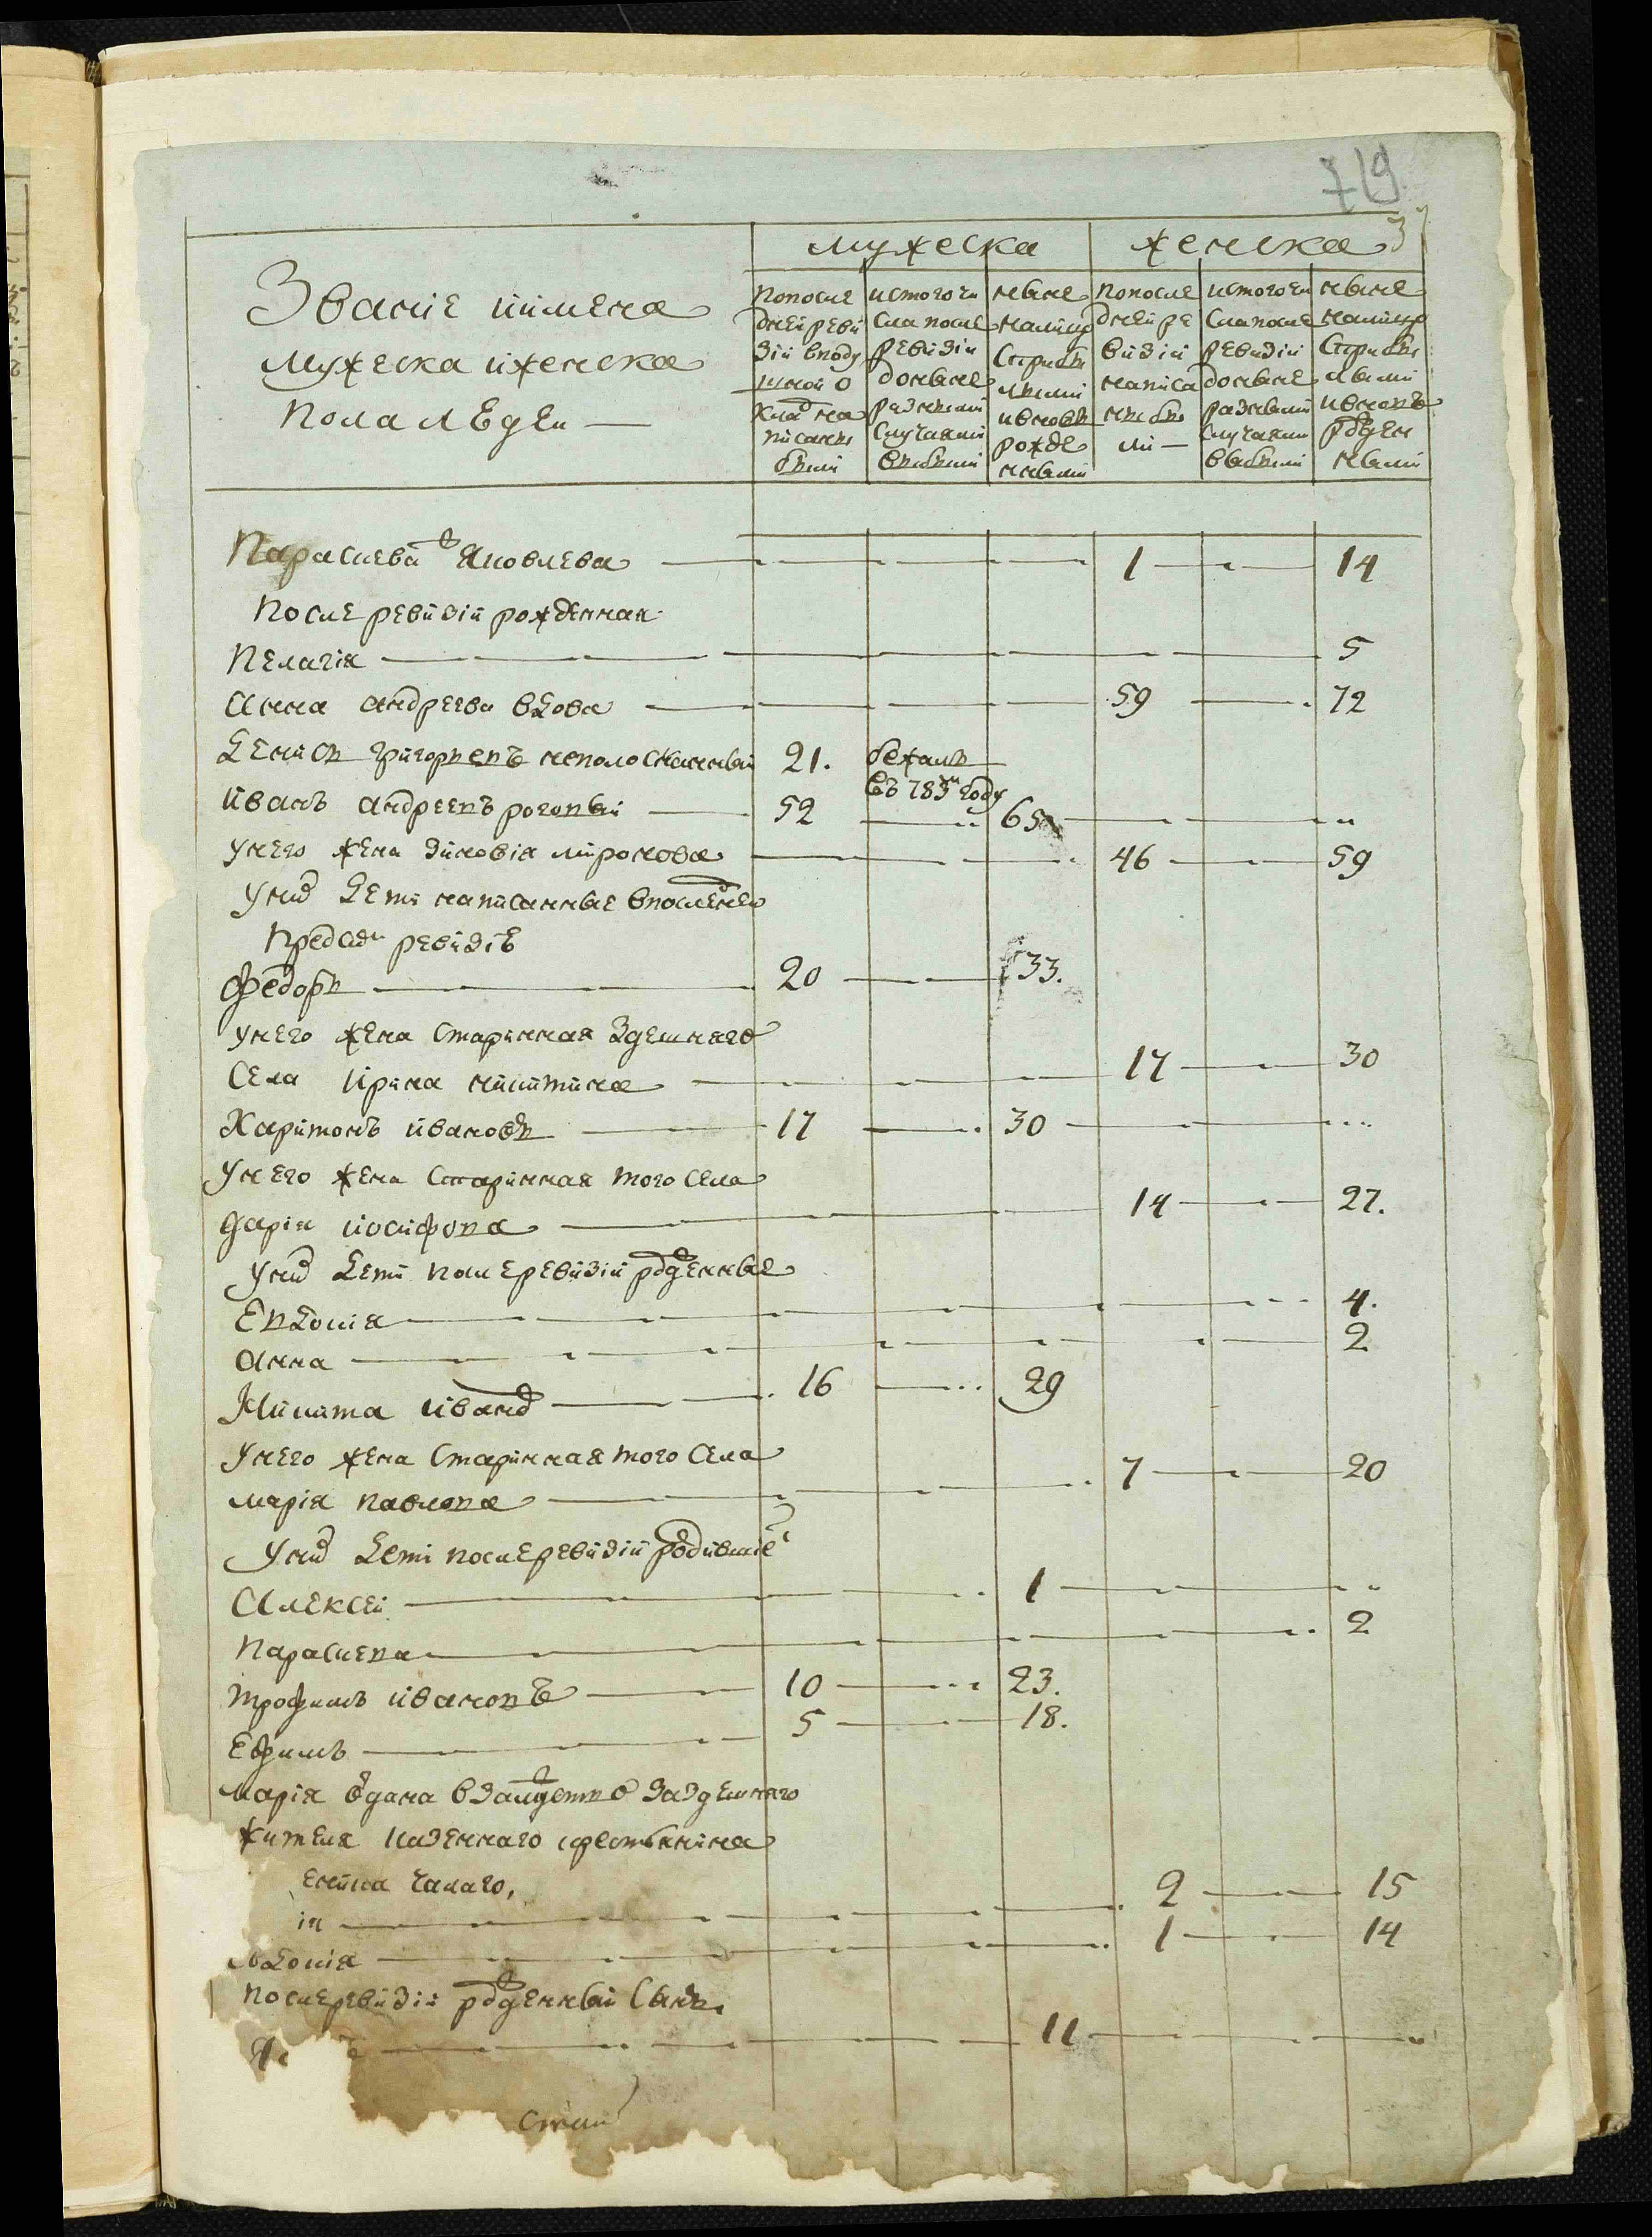 719
37
мужеска женска
Званіе иимена
мужеска иженска
пола людеи —
попосле
днеи реви
зіи вподу
шнои о
кладъ на
писаны
были
истого чи
сла после
ревизіи
доныне
разными
случаями
выбыли
ныне
налицо
старыхъ
лѣтъ
ивновь
рожде
нными
попосле
днеи ре
визіи
написа
ны бы
ли —
истого чи
сла после
ревизіи
доныне
разными
случаями
выбыли
ныне
налицо
ивновъ
рожден
ными
Параскевия Яковлева — 1 — 14
После ревизіи рожденная
Пелагія — 5
Анна андреева вдова — 59 — 72
Денисъ григорьевъ неполосканный 21. бежалъ въ 783м году
Иванъ андреевъ роговый — 52 — 65 — „
Унего жена зиновія миронова — 46 — 59
Унихъ дети написанные впоследнеи
Предъ симъ ревизіѣ
Федоръ — 20 — 33.
унего жена старинная здешняго
Села Ирина никитина — 17 — 30
Харитонъ ивановъ — 17 — 30 — „
Унего жена старинная того села
Дарія иосифова — 14 — 27.
Унихъ дети после ревизіи рожденные
Евдокія — 4.
Анна — 2
Никита ивановъ — 16 — 29
Унего жена старинная того села
марія павлова — 7 — 20
Унихъ дети после ревизіи родившіе
Алексеи — 1 — „
Параскева — 2
трофимъ ивановъ — 10 — 23.
Ефимъ — 5 — 18.
марія въдана взамужство заздешняго
жителя казеннаго крестьянина
Чалаго,
ія — 2 — 15
вдокія — 1 — 14
после ревизіи рожденный сынъ
11 — „